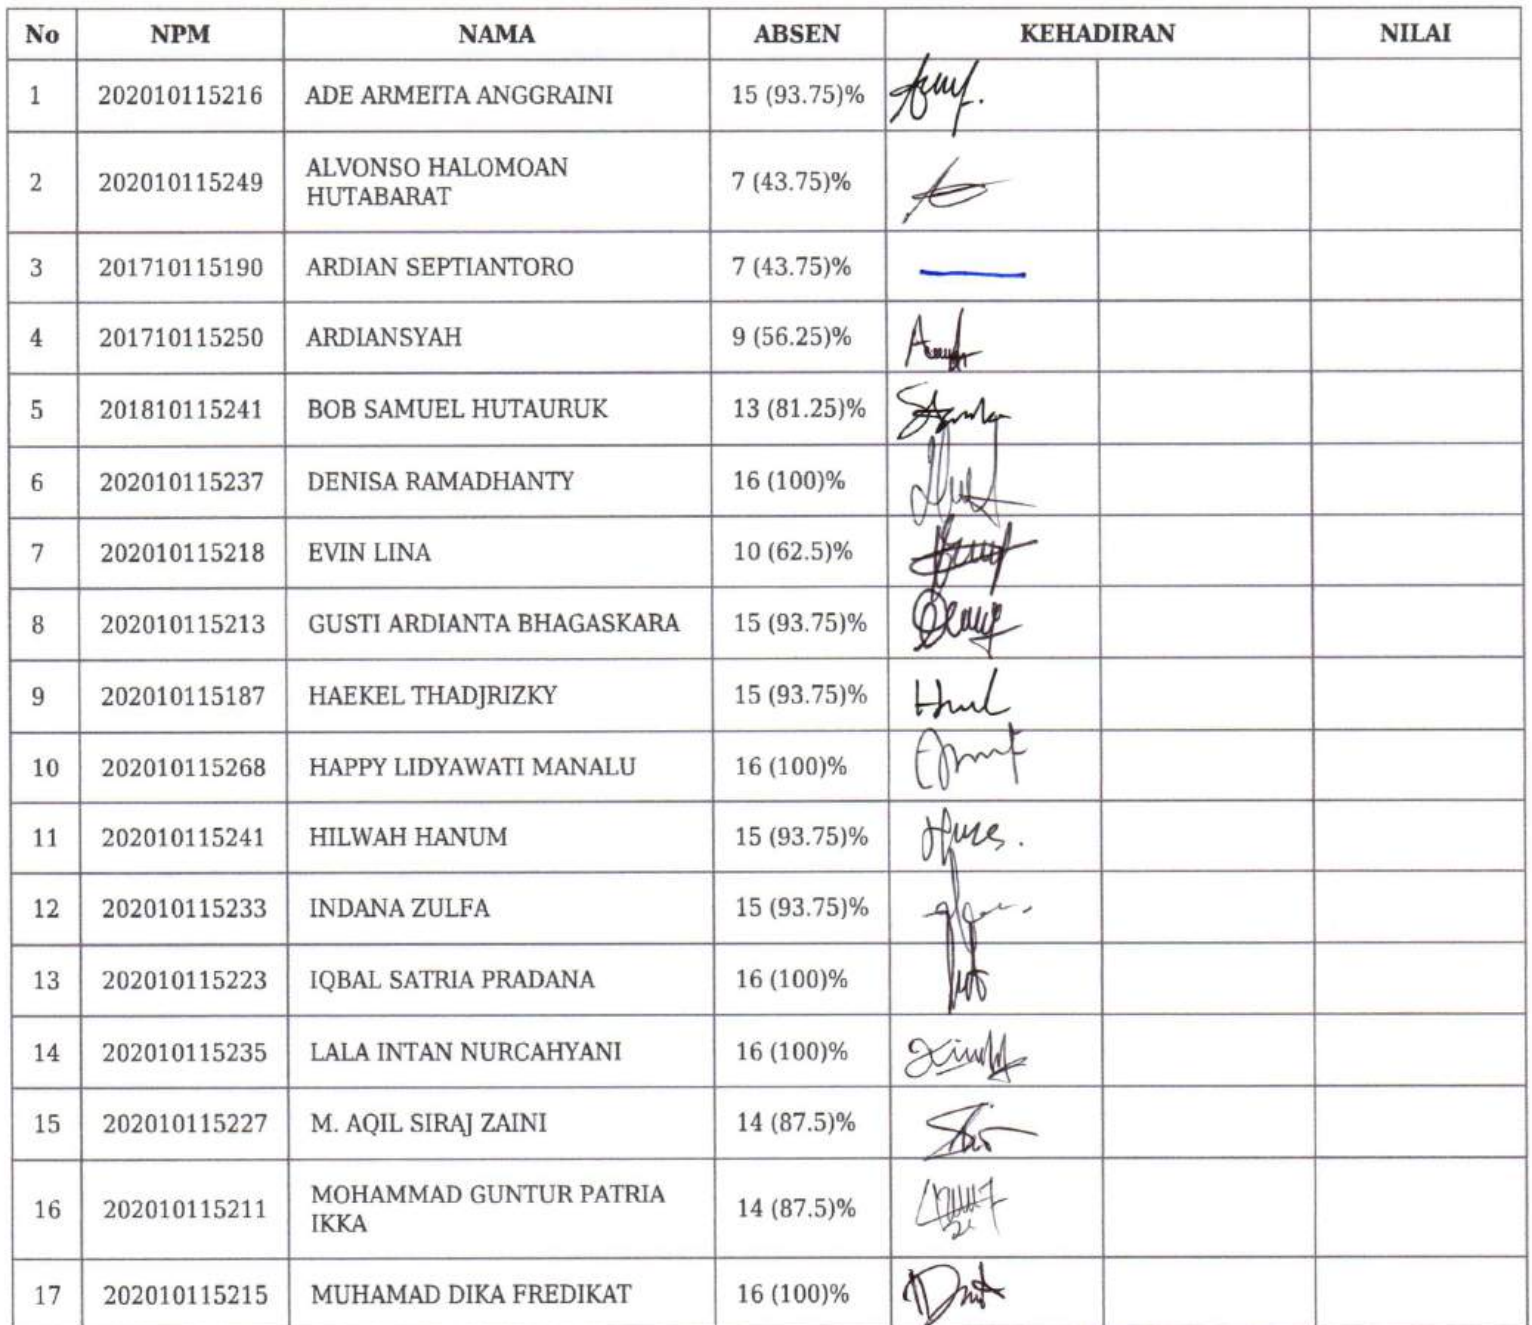 No NPM NAMA ABSEN KEHADIRAN NILAI
1 202010115216 ADE ARMEITA ANGGRAINI 15 (93.75)%
2 202010115249 ALVONSO HALOMOAN HUTABARAT 7 (43.75)%
3 201710115190 ARDIAN SEPTIANTORO 7 (43.75)%
4 201710115250 ARDIANSYAH 9 (56.25)%
5 201810115241 BOB SAMUEL HUTAURUK 13 (81.25)%
6 202010115237 DENISA RAMADHANTY 16 (100)%
7 202010115218 EVIN LINA 10 (62.5)%
8 202010115213 GUSTI ARDIANTA BHAGASKARA 15 (93.75)%
9 202010115187 HAEKEL THADJRIZKY 15 (93.75)%
10 202010115268 HAPPY LIDYAWATI MANALU 16 (100)%
11 202010115241 HILWAH HANUM 15 (93.75)%
12 202010115233 INDANA ZULFA 15 (93.75)%
13 202010115223 IQBAL SATRIA PRADANA 16 (100)%
14 202010115235 LALA INTAN NURCAHYANI 16 (100)%
15 202010115227 M. AQIL SIRAJ ZAINI 14 (87.5)%
16 202010115211 MOHAMMAD GUNTUR PATRIA IKKA 14 (87.5)%
17 202010115215 MUHAMAD DIKA FREDIKAT 16 (100)%